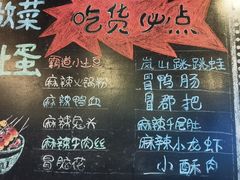 菜
吃货必点
蛋
霸道小土豆
麻辣火锅粉
麻辣鸭血
麻辣兔头
麻辣牛肉丝
冒脑花
乐山跷跷蛙
冒鸭肠
冒郡把
麻辣千层肚
麻辣小龙虾
小酥肉